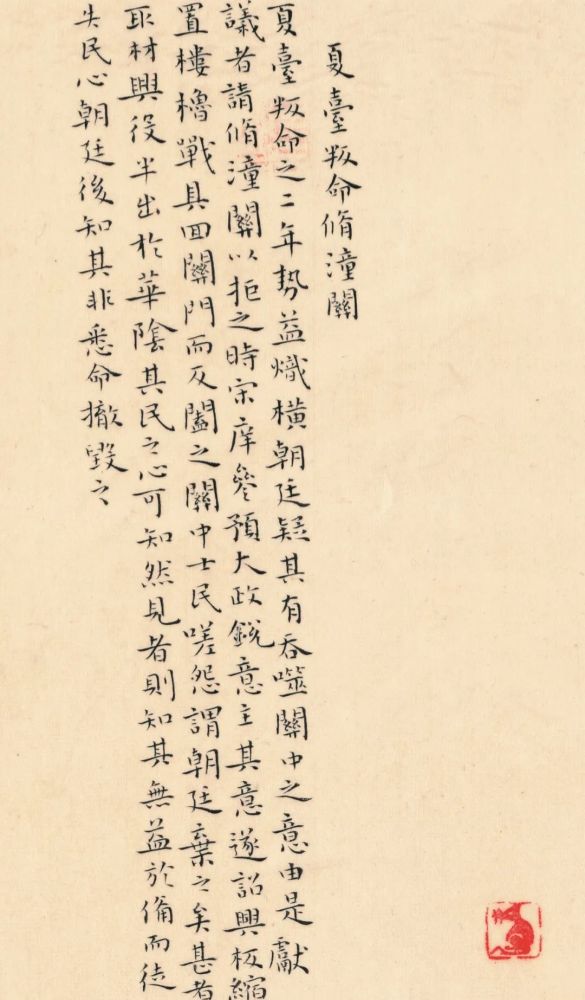 夏臺叛命脩潼關
夏臺叛命之二年勢益熾橫朝廷疑其有吞噬關中之意由是獻
議者請脩潼關以拒之時宋庠參預大政銳意主其意遂詔興板縮
置樓櫓戰具回關門而反闔之關中士民嗟怨謂朝廷棄之矣甚者
取材興役半出於華陰其民之心可知然見者則知其無益於備而徒
失民心朝廷後知其非悉命撤毀之